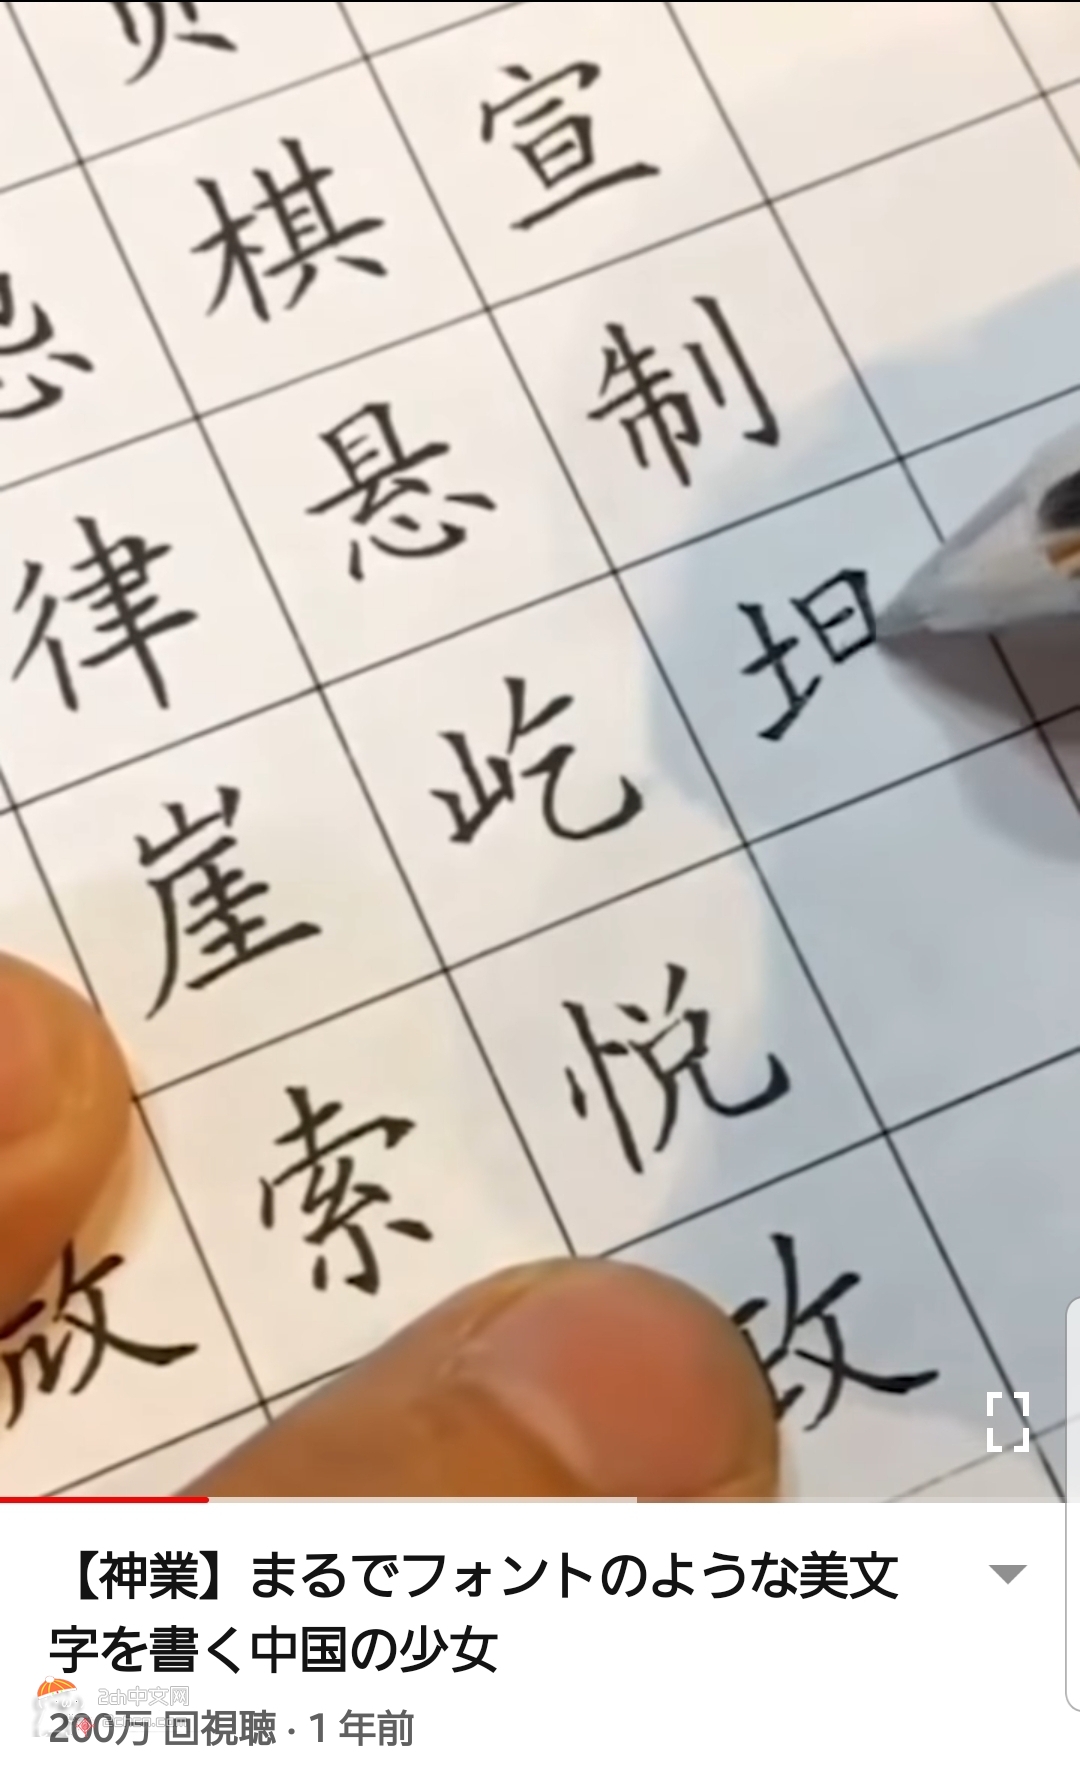 宣
棋
制
悬
坦
律
屹
崖
悦
索
政
【神業】まるでフォントのような美文
字を書く中国の少女
200万 回視聴 · 1 年前
2ch中文网